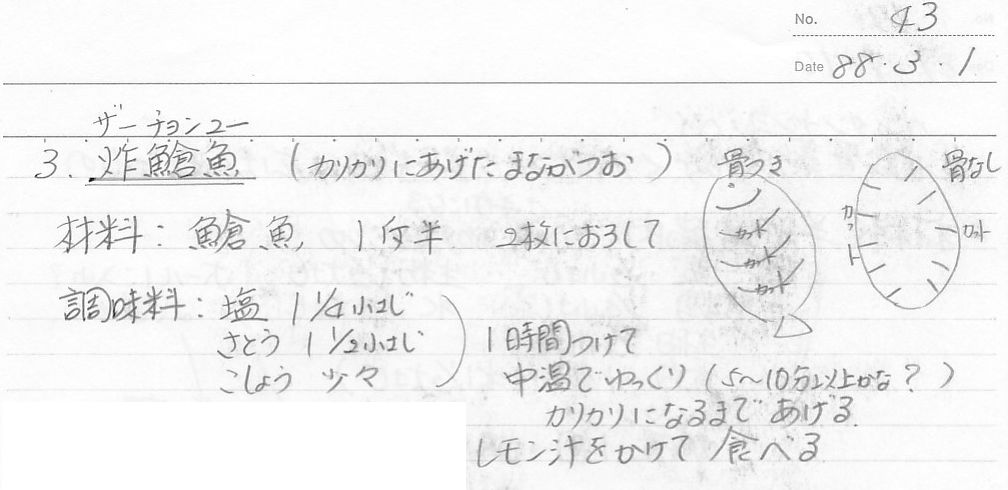 No. 43
Date 88・3・1
ザーチョンユー
3. 炸鯧魚 (カリカリにあげた まながつお)
骨つき
カット
カット
カット
骨なし
カット
カット
材料: 鯧魚 1斤半 2枚におろして
調味料: 塩 1 1/4 小さじ
さとう 1 1/2 小さじ
こしょう 少々
1時間つけて
中温でゆっくり (5〜10分以上かな?)
カリカリになるまで あげる.
レモン汁をかけて 食べる